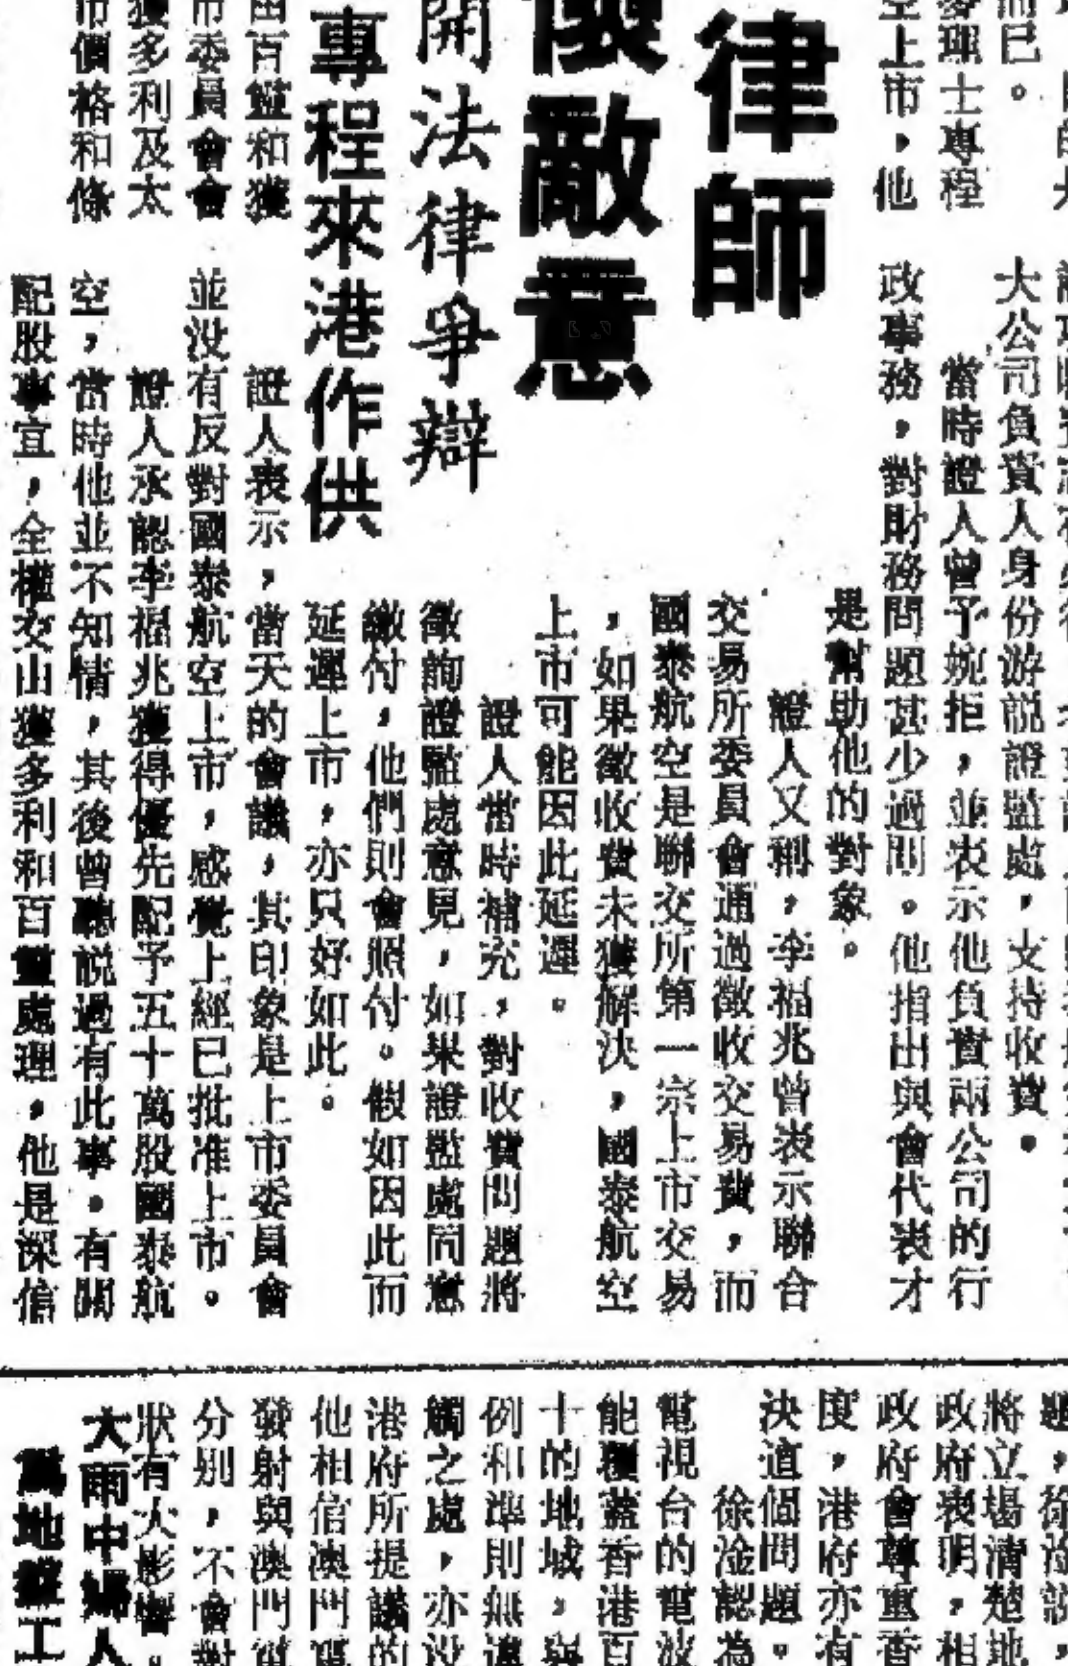 而已。
麥理士專程
空上市，他
大公司負責人身份游説證監處，支持收費。
當時證人曾予婉拒，並表示他負責兩公司的行
政事務，對財務問題甚少過問。他指出與會代表才
是幫助他的對象。
證人又稱，李福兆曾表示聯合
交易所委員會通過徵收交易費，而
國泰航空是聯交所第一宗上市交易
，如果徵收費未獲解決，國泰航空
上市可能因此延遲。
證人當時補充，對收費問題將
徵詢證監處意見，如果證監處同意
繳付，他們則會照付。假如因此而
延遲上市，亦只好如此。
律師
懷敵意
開法律爭辯
專程來港作供
由百鑑和獲
市委員會會
獲多利及太
市價格和條
證人表示，當天的會議，其印象是上市委員會
並没有反對國泰航空上市，感覺上經已批准上市。
證人承認李福兆獲得優先配予五十萬股國泰航
空，當時他並不知情，其後曾聽説過有此事。有關
配股事宜，全權交由獲多利和百鑑處理，他是深信
題，徐淦説，
將立場清楚地
政府表明，相
政府會尊重香
度，港府亦有
決這個問題。
徐淦認為
電視台的電波
能覆蓋香港百
十的地域，與
例和準則無違
觸之處，亦没
港府所提議的
他相信澳門電
發射與澳門電
分别，不會對
狀有大影響。
大雨中婦人
萬地盤工